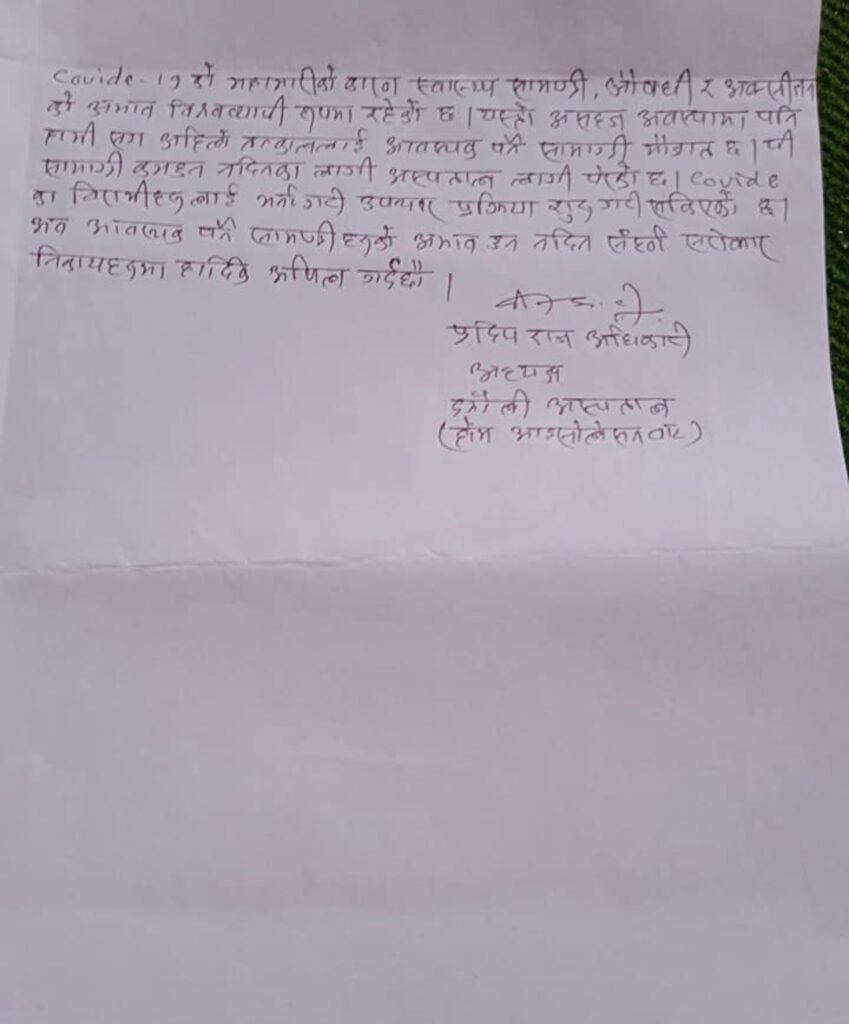 Covide-19 को महामारीको कारण स्वास्थ्य सामग्री, औषधी र अक्सीजन
को अभाव विश्वव्यापी रुपमा रहेको छ। यस्तो असहज अवस्थामा पनि
हामी संग अहिले तत्काललाई आवश्यक पर्ने सामाग्री मौजात छ। यी
सामाग्री लागी अस्पताल लागी छ। Covide
का विरामीहरुलाई भर्ना गरी उपचार प्रक्रिया शुरु गरी सकिएको छ।
अब आवश्यक पर्ने सामग्रीहरुको अभाव हुन नदिन सरोकार
निकायहरुमा हार्दिक अपिल गर्दछौ।
प्रदिप राज अधिकारी
अध्यक्ष
अस्पताल
(होम आइसोलेसन वाट)